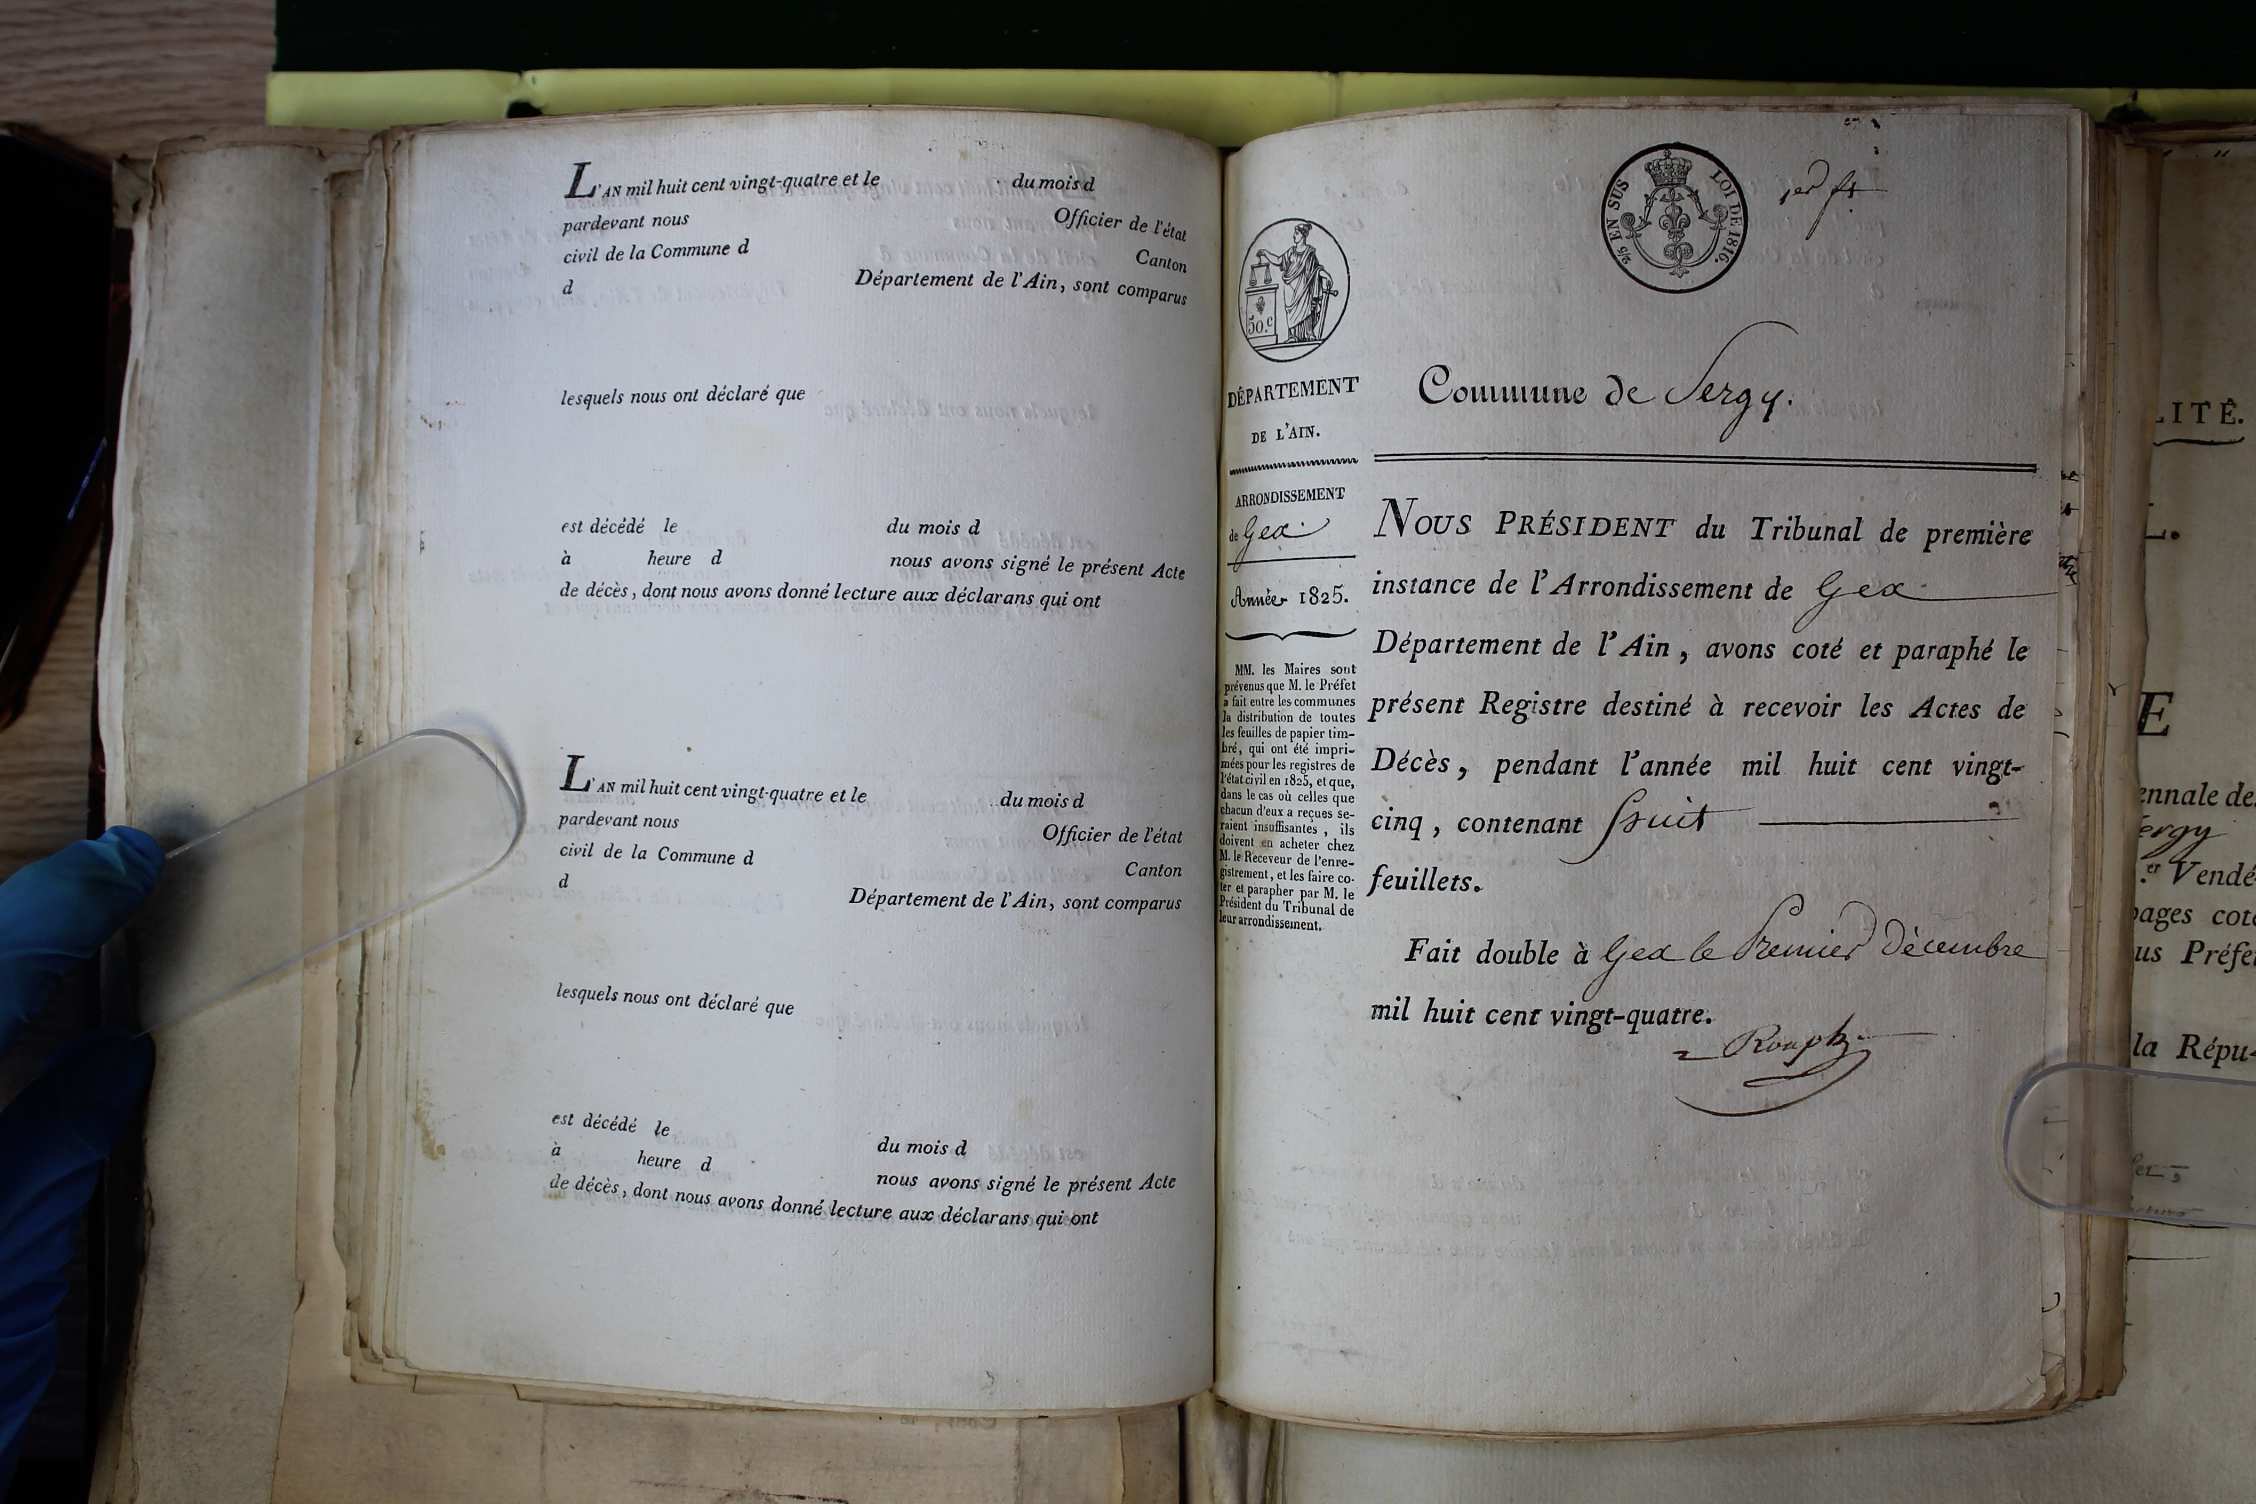 L'AN mil huit cent vingt-quatre et le du mois d
pardevant nous Officier de l'état
civil de la Commune d Canton
d Département de l'Ain, sont comparus
lesquels nous ont déclaré que
est décédé le du mois d
à heure d nous avons signé le présent Acte
de décès, dont nous avons donné lecture aux déclarans qui ont
L'AN mil huit cent vingt-quatre et le du mois d
pardevant nous Officier de l'état
civil de la Commune d Canton
d Département de l'Ain, sont comparus
lesquels nous ont déclaré que
est décédé le du mois d
à heure d nous avons signé le présent Acte
de décès, dont nous avons donné lecture aux déclarans qui ont
2/5 EN SUS LOI DE 1816.
50.c
DÉPARTEMENT
DE L'AIN.
ARRONDISSEMENT
de Gex.
Année 1825.
MM. les Maires sont
prévenus que M. le Préfet
a fait entre les communes
la distribution de toutes
les feuilles de papier tim-
bré, qui ont été impri-
mées pour les registres de
l'état civil en 1825, et que,
dans le cas où celles que
chacun d'eux a reçues se-
raient insuffisantes, ils
doivent en acheter chez
M. le Receveur de l'enre-
gistrement, et les faire co-
ter et parapher par M. le
Président du Tribunal de
leur arrondissement.
Commune de Sergy.
NOUS PRÉSIDENT du Tribunal de première
instance de l'Arrondissement de Gex
Département de l'Ain, avons coté et paraphé le
présent Registre destiné à recevoir les Actes de
Décès, pendant l'année mil huit cent vingt-
cinq, contenant huit
feuillets.
Fait double à Gex le Premier Décembre
mil huit cent vingt-quatre.
LITÉ.
L.
E
ennale de
Sergy
er Vendé-
pages coté
us Préfe
la Répu-